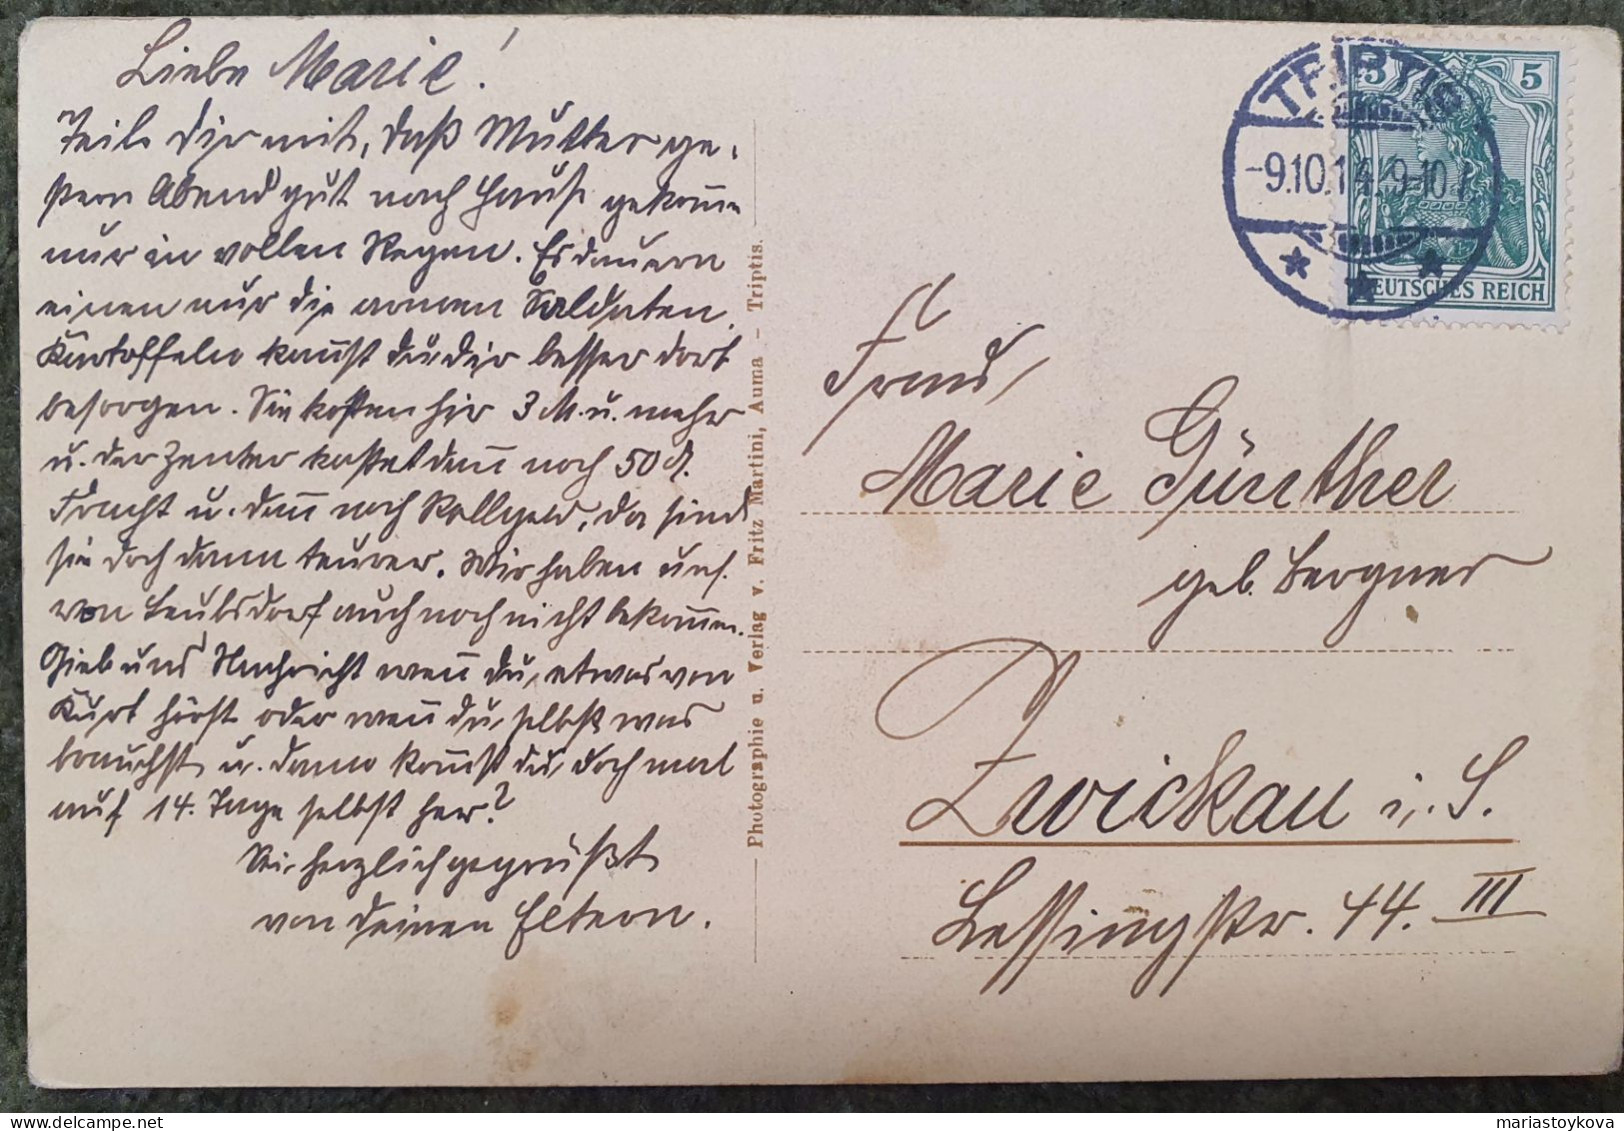 Liebe Marie!
Teile Dir mit, daß Mutter ge-
stern Abend gut nach Hause gekom̄en
nur in vollen Regen. Es dauern
einen nur die armen Soldaten.
Kartoffeln kan̄st du dir besser dort
besorgen. Sie kosten hir 3 M. u. mehr
u. der Zentner kostet dan̄ noch 50 ₰.
Fracht u. dan̄ noch Rollgeld, da sind
sie doch dann teurer. Wir haben uns.
von Leubsdorf auch noch nicht bekom̄en.
Gieb uns Nachricht wen̄ du, etwas von
Kurt hörst oder wen̄ du, selbst was
brauchst u. dann kom̄st du, doch mal
auf 14. Tage selbst her?
Sei herzlich gegrüßt
von deinen Eltern.
Photographie u. Verlag v. Fritz Martini, Auma – Triptis.
TRIPTIS
-9.10.14. 9-10
5 5
DEUTSCHES REICH
Frau
Marie Günther
geb. Bergner
Zwickau i. S.
Lessingstr. 44. III
mariastoykova